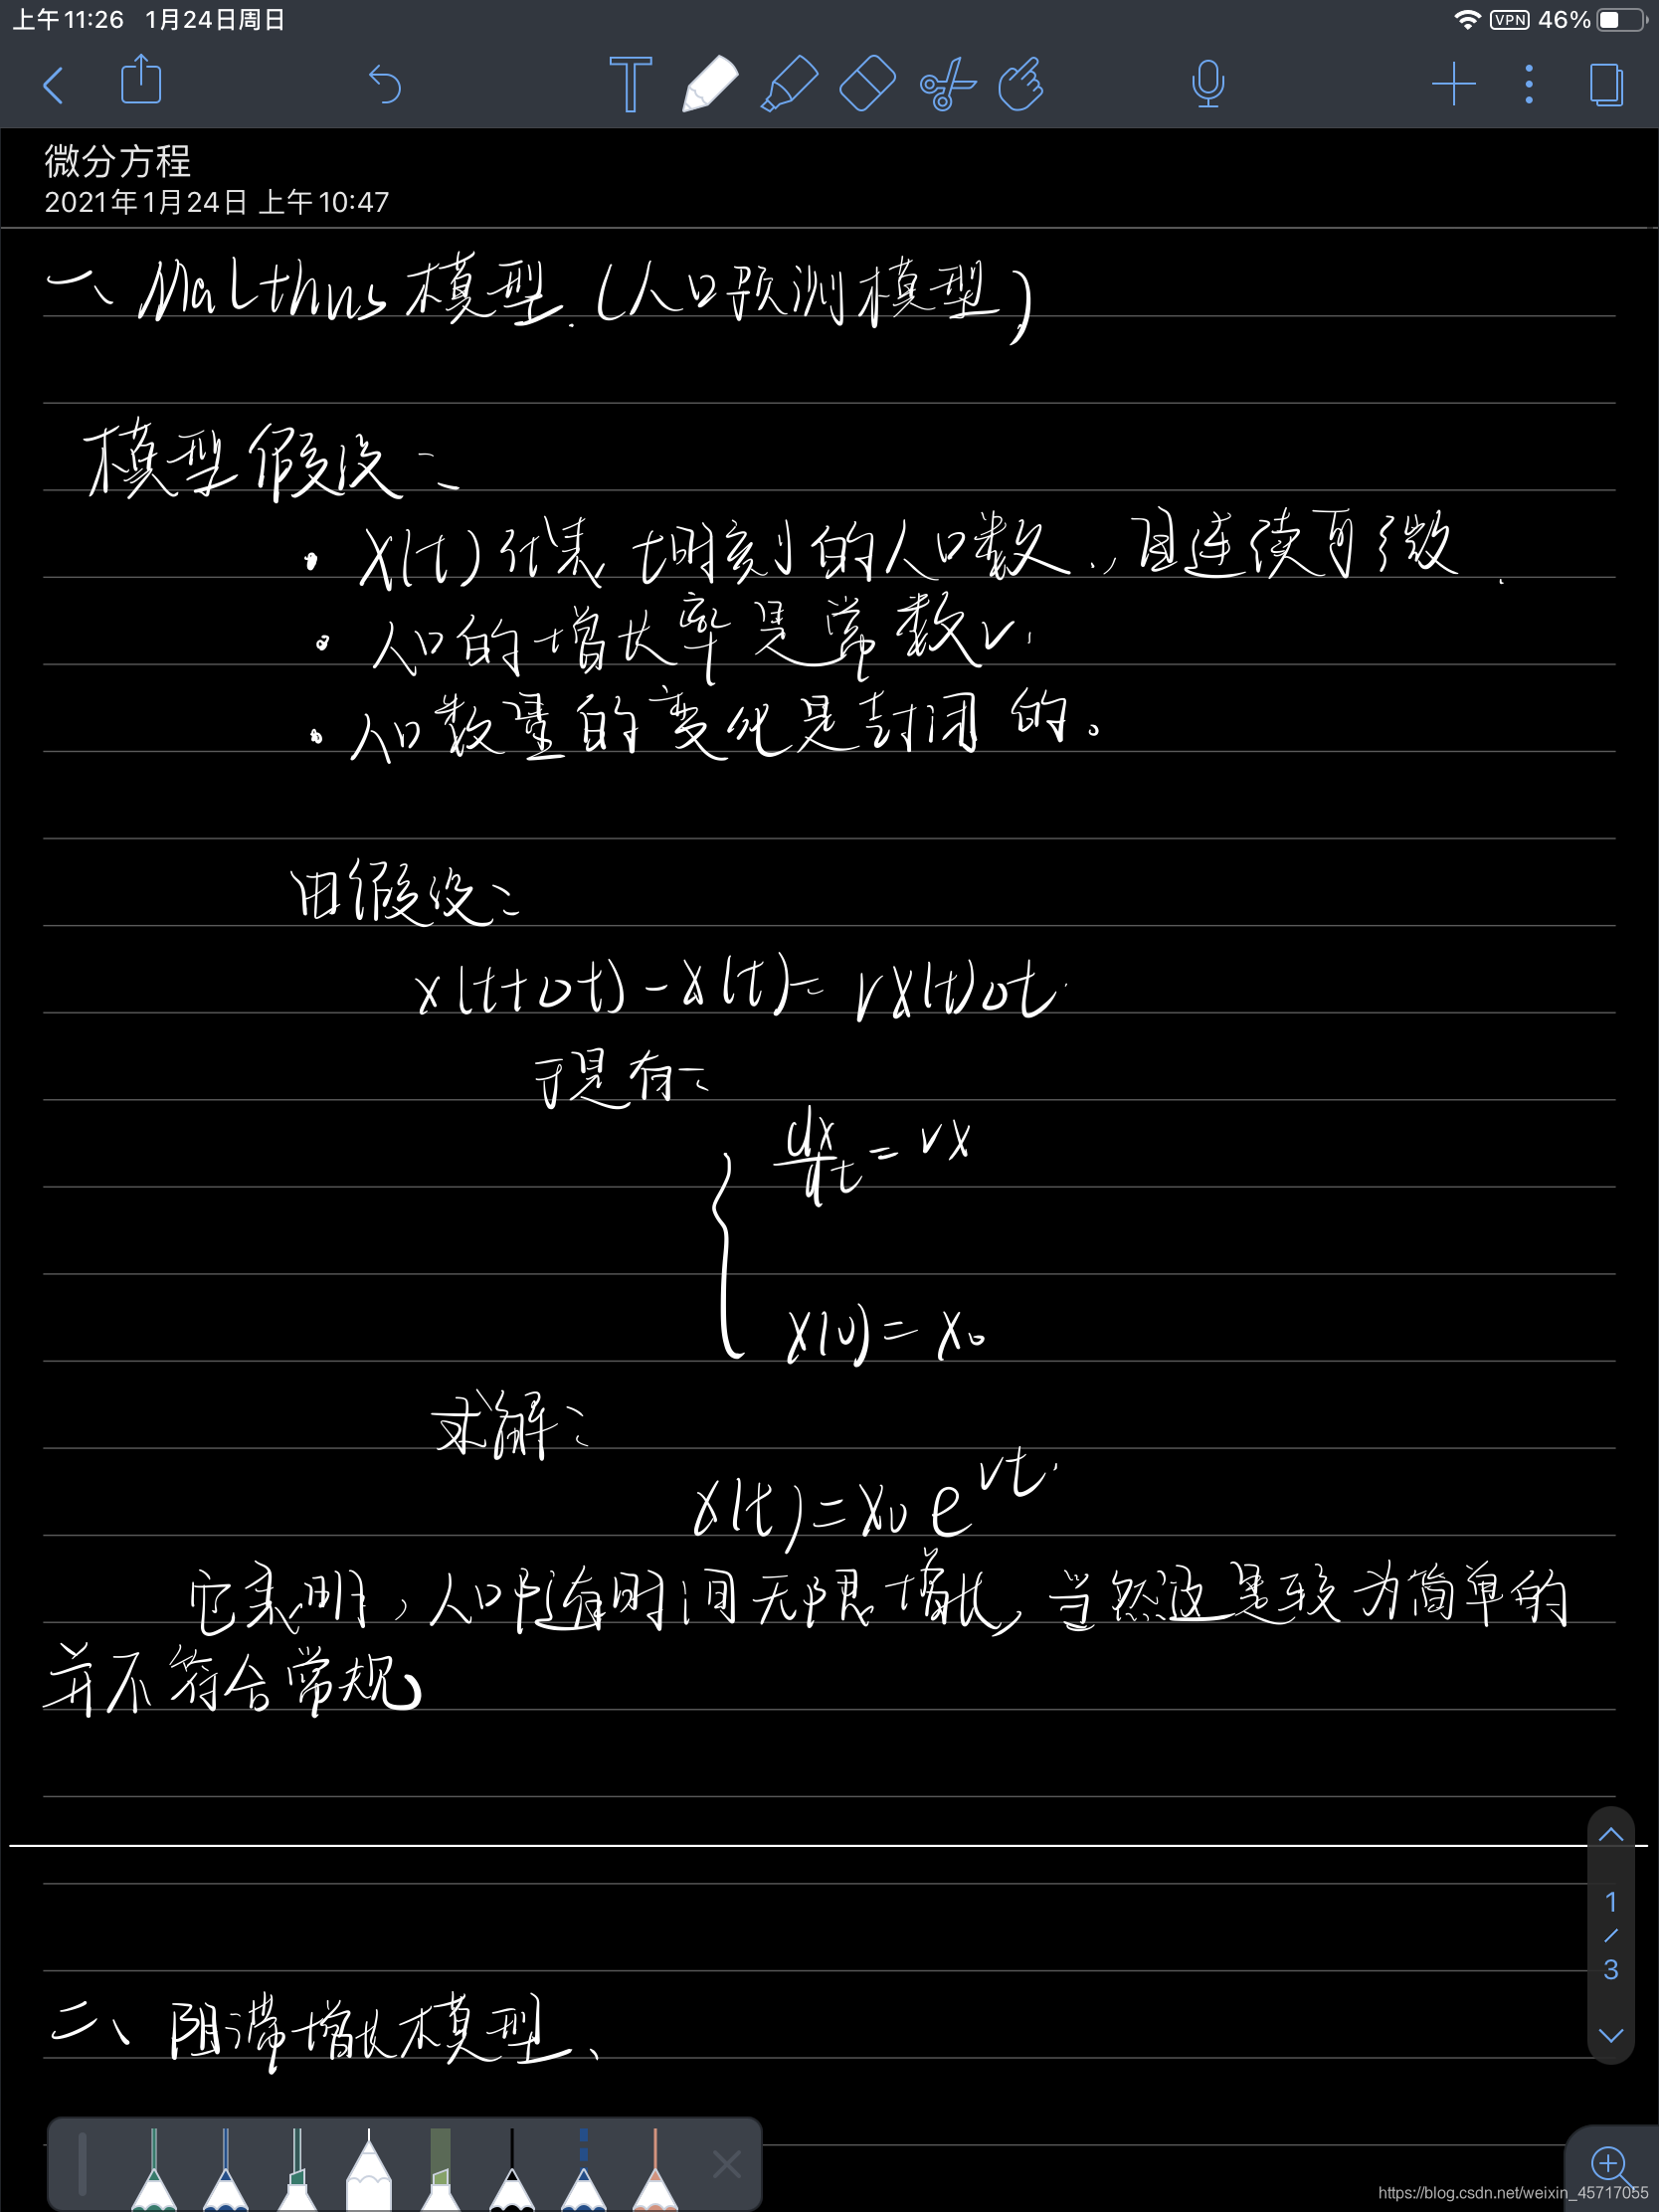 上午11:26 1月24日周日 VPN 46%
T
微分方程
2021年1月24日 上午10:47
一、Malthus模型.(人口预测模型)
模型假设:
· X(t)代表t时刻的人口数.,且连续可微.
· 人口的增长率是常数r.
· 人口数量的变化是封闭的。
由假设:
x(t+Δt)-x(t)=rx(t)Δt.
于是有:
dx/dt=rx
x(0)=x₀
求解:
x(t)=x₀e^rt.
它表明,人口随时间无限增长,当然这是较为简单的
并不符合常规。
1
/
3
二、阻滞增长模型、
https://blog.csdn.net/weixin_45717055